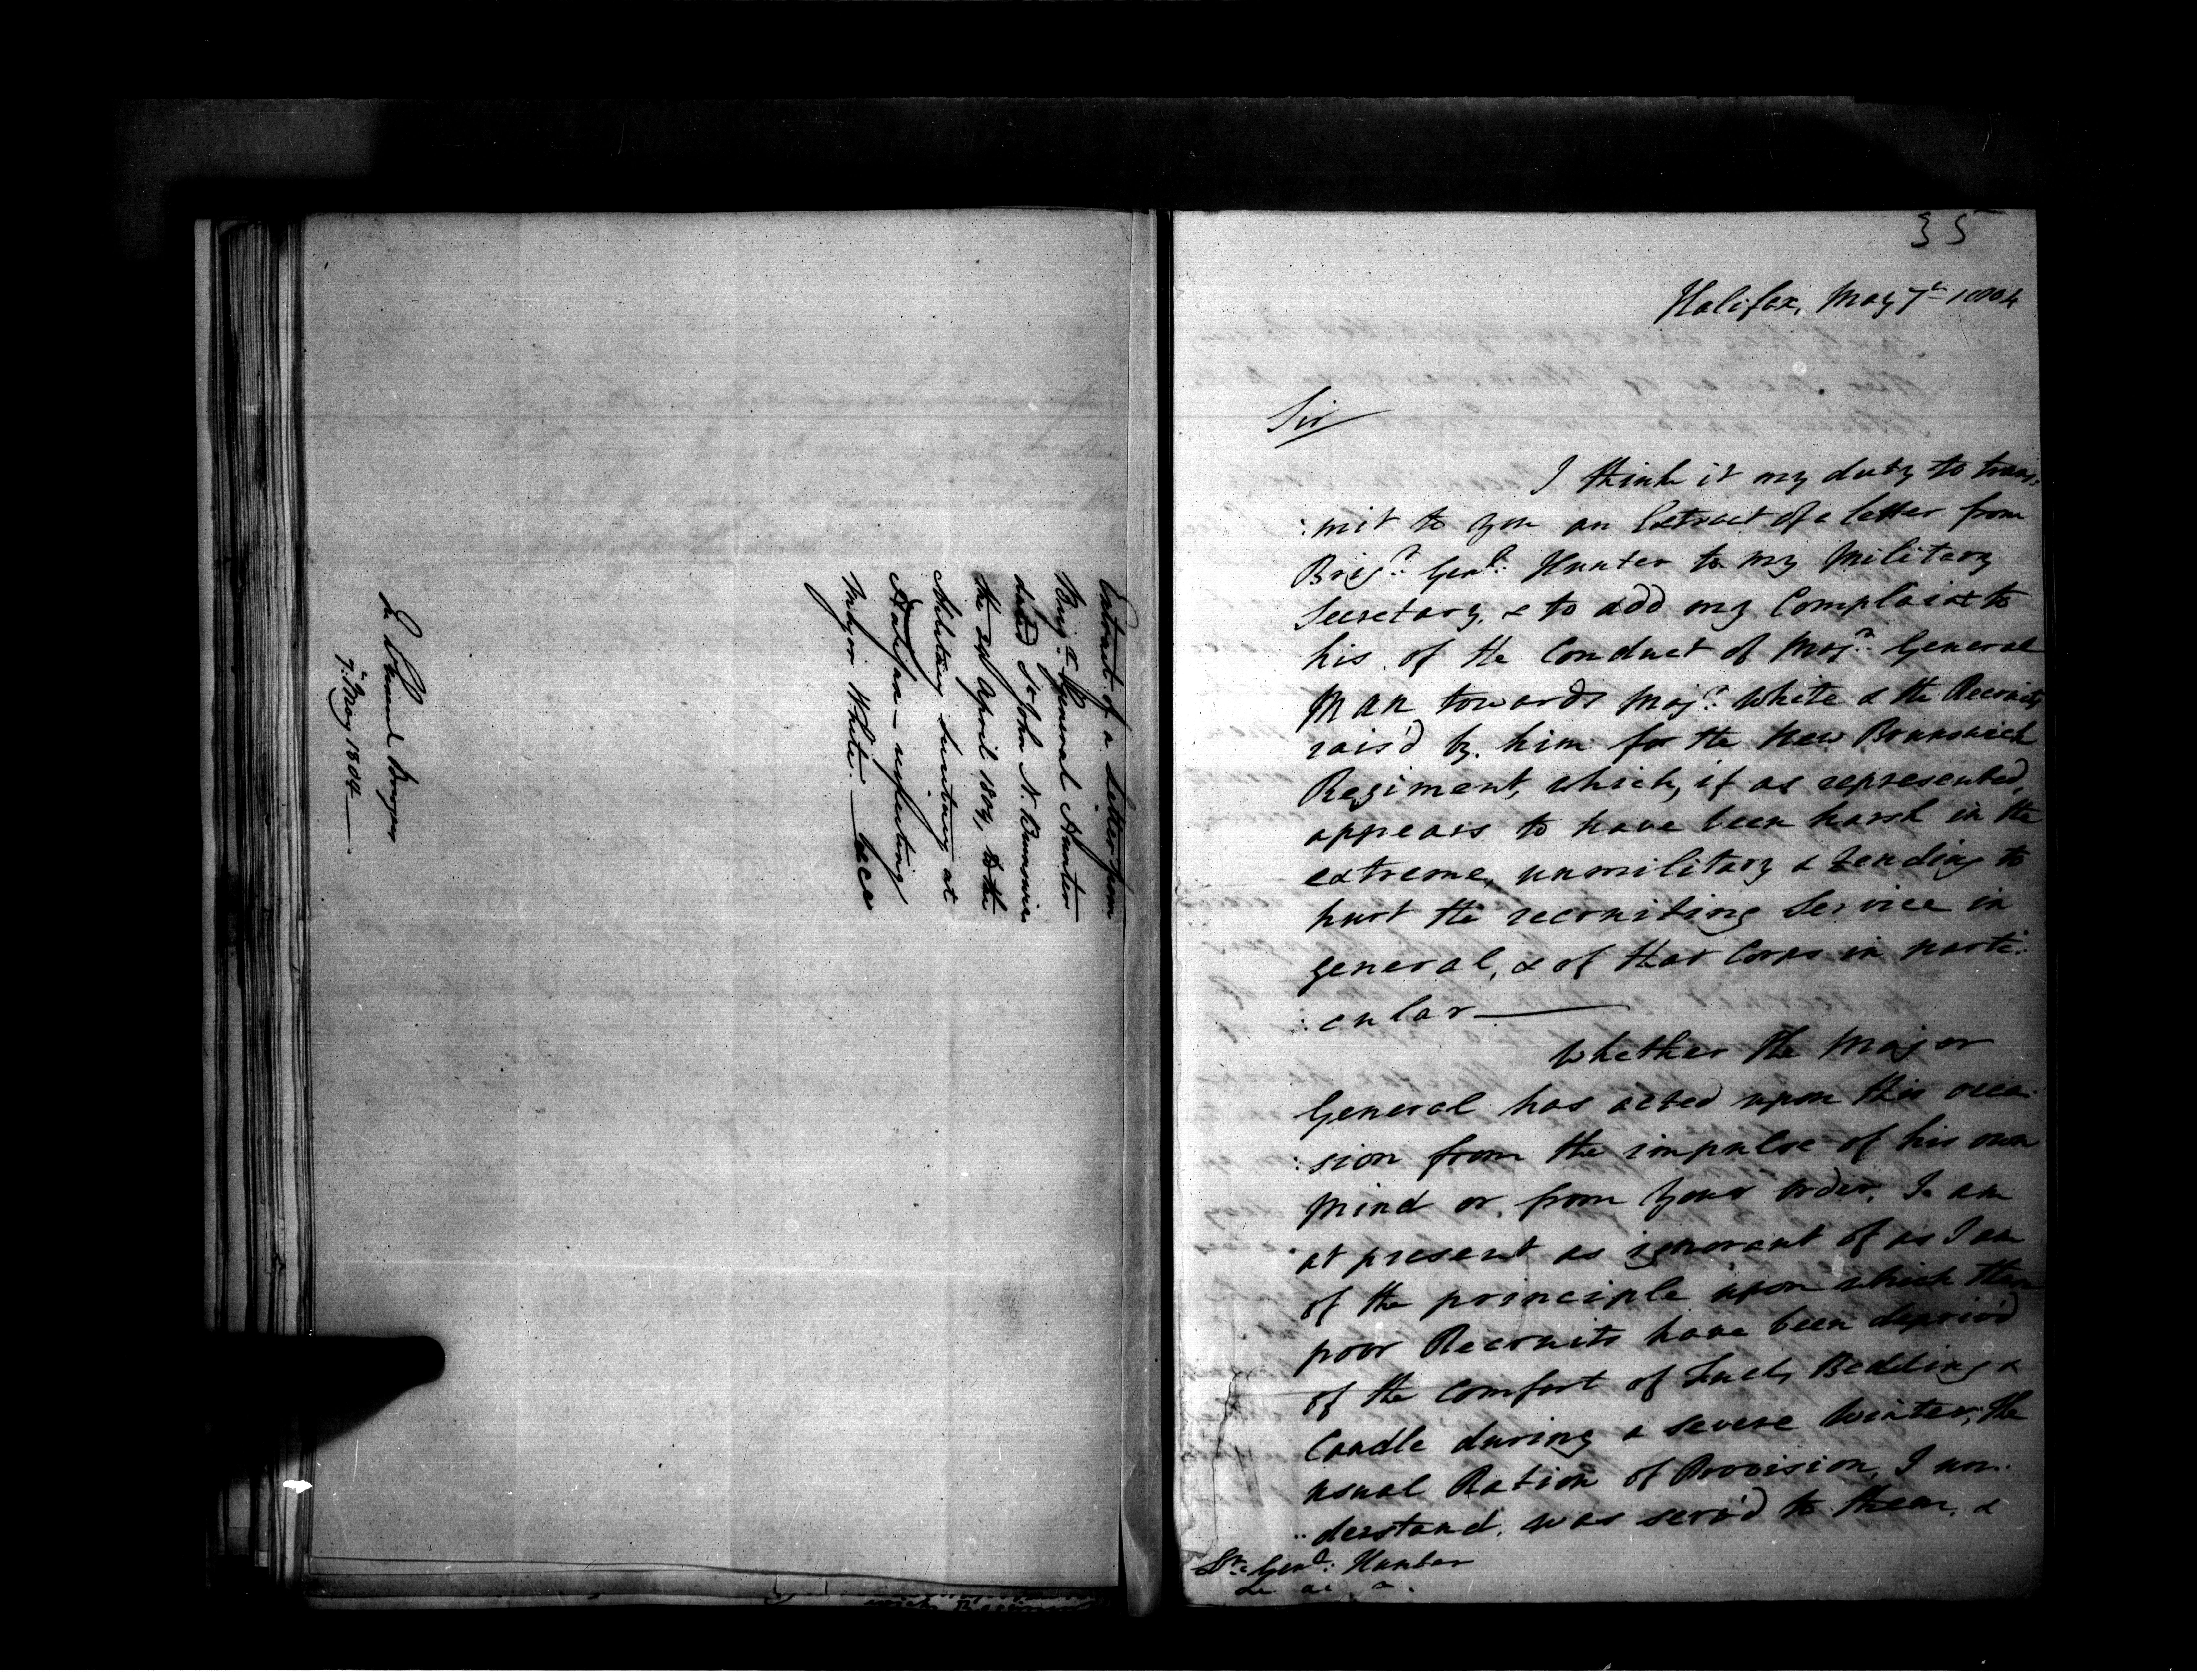 Extract of a Letter from
Brigr. General Hunter
dated St. John N. Brunswick
the 24 April 1804, to the
Military Secretary at
Halifax — respecting
Major White. —
In General Bowyer
7th. May 1804 —
35
Halifax, May 7th 1804
Sir
I think it my duty to trans-
:mit to you an Extract of a letter from
Brigr. Genl. Hunter to my Military
Secretary, & to add my Complaint to
his, of the Conduct of Majr. General
Man towards Majr. White & the Recruits
rais'd by him for the New Brunswick
Regiment, which, if as represented,
appears to have been harsh in the
extreme, unmilitary & tending to
hurt the recruiting Service in
general, & of that Corps in parti:
:cular —
Whether the Major
General has acted upon this occa:
:sion from the impulse of his own
mind or from your order, I am
at present as ignorant of as I am
of the principle upon which these
poor Recruits have been depriv'd
of the comfort of Fuel, Bedding &
Candle during a severe Winter; the
usual Ration of Provision, I un:
:derstand, was serv'd to them, &
Lt. Genl. Hunter